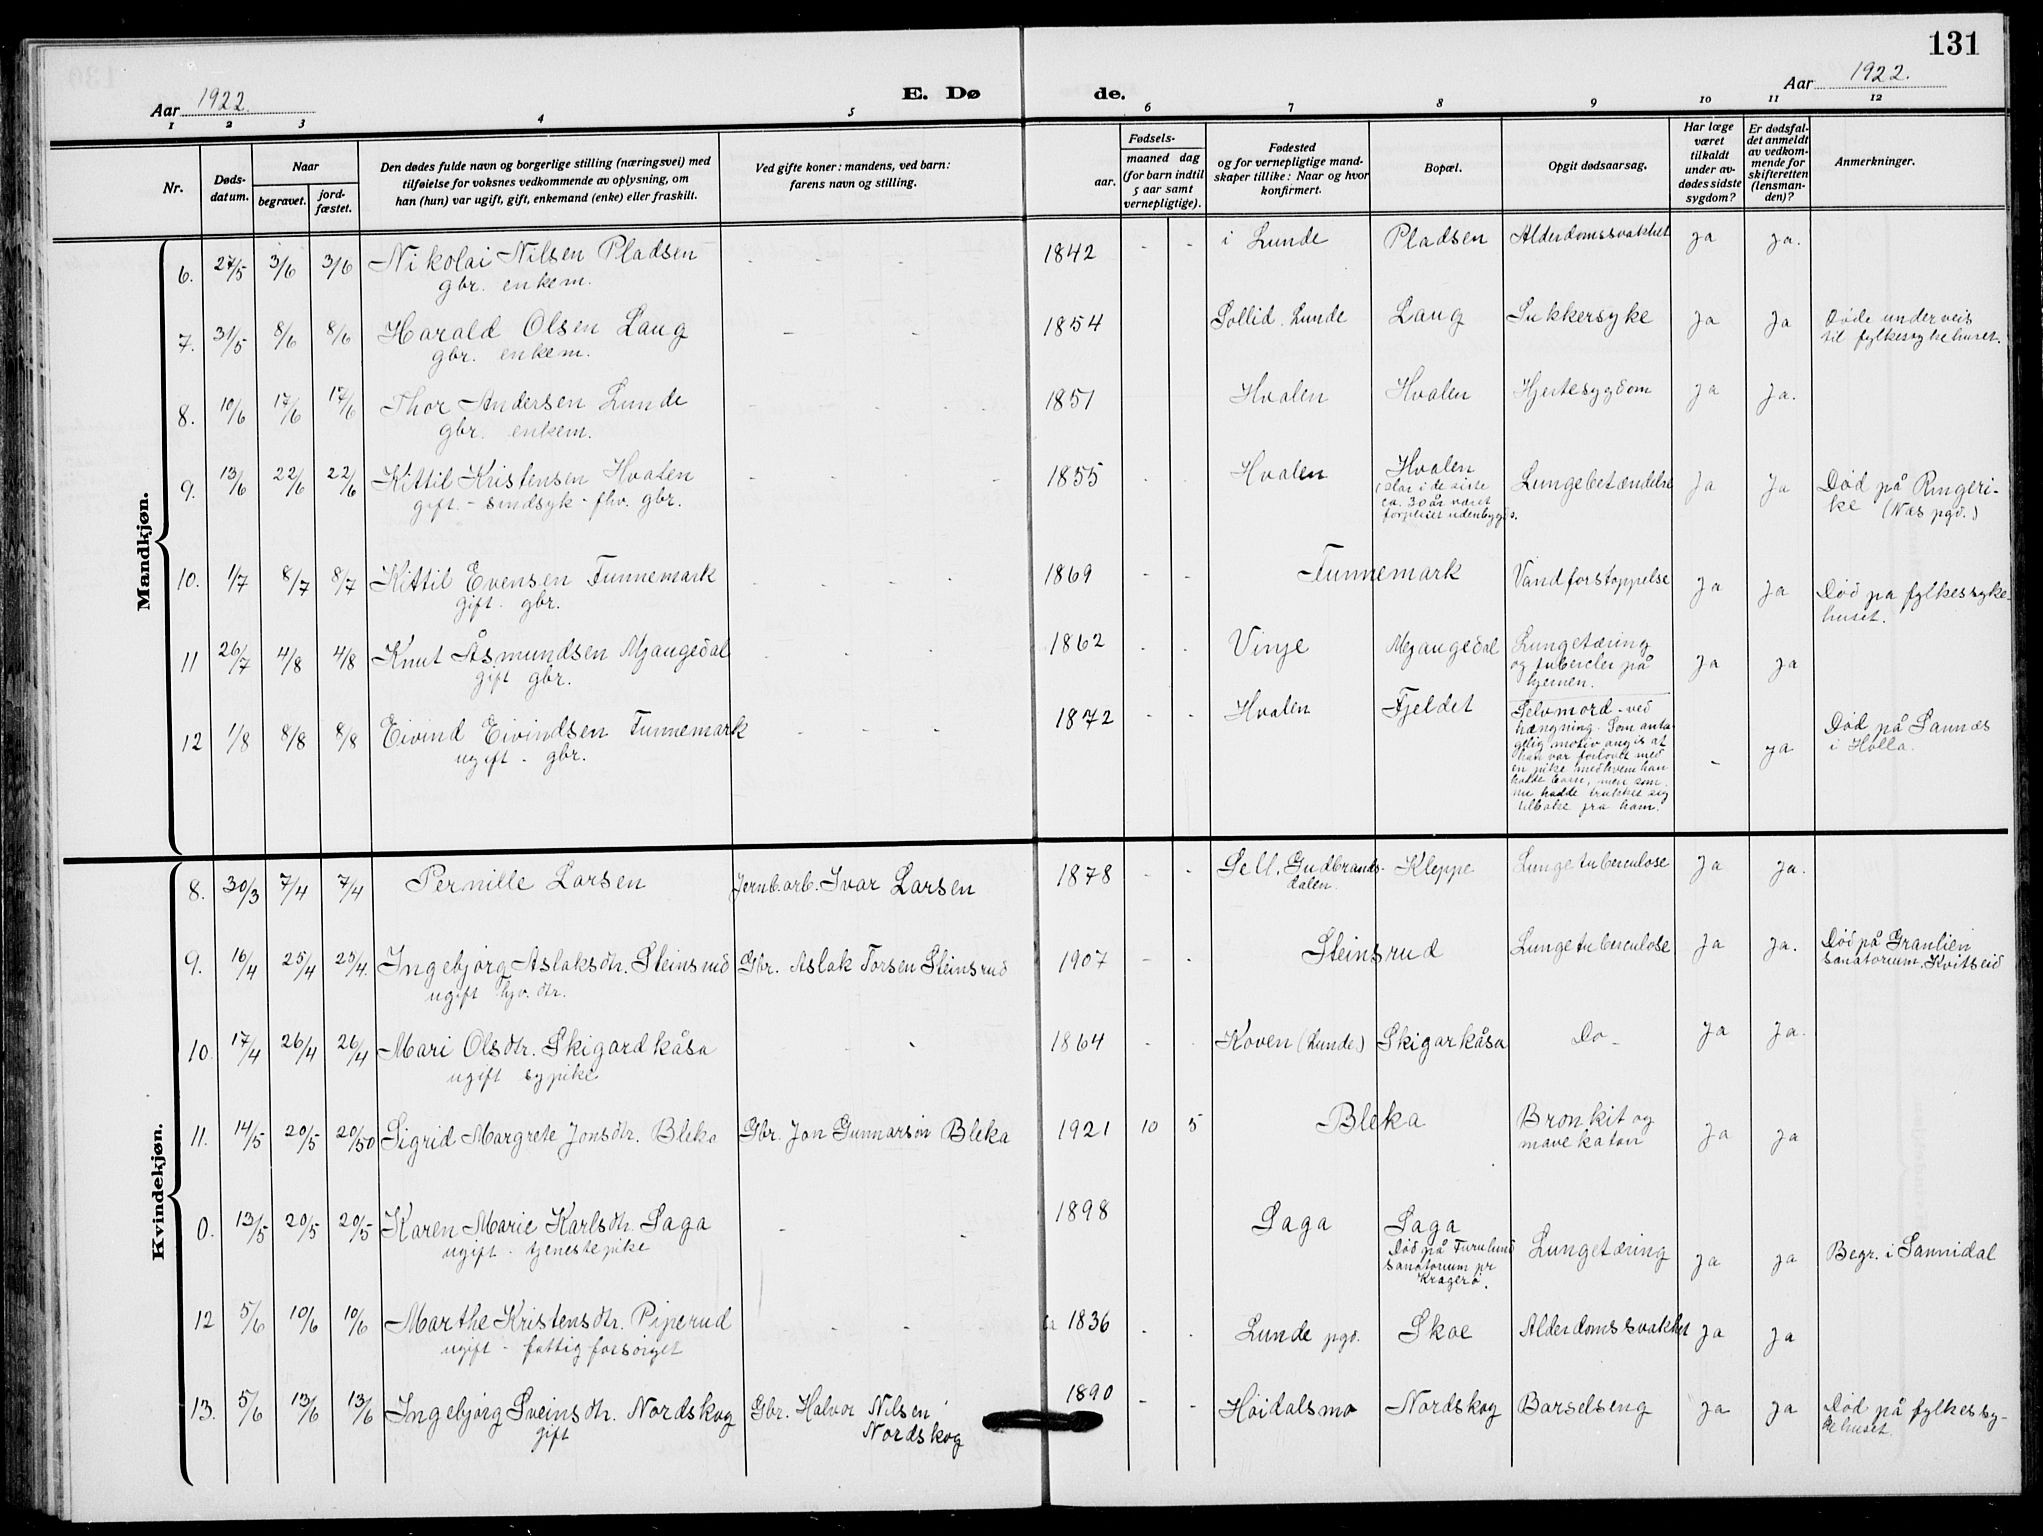 131
Aar 1922.
E. Dø
de.
Aar 1922.
1 2 3 4 5 6 7 8 9 10 11 12
Nr.
Døds-
datum.
Naar
begravet.
jord-
fæstet.
Den dødes fulde navn og borgerlige stilling (næringsvei) med
tilføielse for voksnes vedkommende av oplysning, om
han (hun) var ugift, gift, enkemand (enke) eller fraskilt.
Ved gifte koner: mandens, ved barn:
farens navn og stilling.
Fødsels-
aar.
maaned dag
(for barn indtil
5 aar samt
vernepligtige).
Fødested
og for vernepligtige mand-
skaper tillike: Naar og hvor
konfirmert.
Bopæl.
Opgit dødsaarsag.
Har læge
været
tilkaldt
under av-
dødes sidste
sygdom?
Er dødsfal-
det anmeldt
av vedkom-
mende for
skifteretten
(lensman-
den)?
Anmerkninger.
Mandkjøn.
6. 27/5 3/6 3/6 Nikolai Nilsen Pladsen - - - 1842 - - i Lunde Pladsen Alderdomssvakhet Ja Ja.
gbr. enkem.
7. 31/5 8/6 8/6 Harald Olsen Laug - - 1854 Sollid. Lunde Laug Sukkersyke Ja Ja Døde underveis
gbr. enkem. til fylkessykehuset.
8. 10/6 17/6 17/6 Thor Andersen Lunde - - - 1851 Hvalen Hvalen Hjertesygdom Ja Ja.
gbr. enkem.
9. 13/6 22/6 22/6 Kittil Kristensen Hvalen - - - 1855 - - Hvalen Hvalen Lungebetændelse Ja Ja Død på Ringeri-
gift - sindsyk - fhv. gbr. (Har i de siste ke (Næs pgd.)
ca. 30 år været
forpleiet udenbygds.
10. 1/7 8/7 8/7 Kittil Evensen Funnemark - - - 1869 - - Funnemark Vandforstoppelse Ja Ja Død pa fylkessyke-
gift. gbr. huset.
11 26/7 4/8 4/8 Knut Åsmundsen Mjaugedal - - - 1862 - - Vinje Mjaugedal Lungetæring
gift gbr. og tubercler på Ja Ja
hjernen.
12 1/8 8/8 8/8 Eivind Eivindsen Funnemark - - - 1872 - - Hvalen Fjeldet Selvmord - ved
ugift - gbr. hængning. Som anta-
gelig motiv angis at - ja Død på Sannes
han var forlovet med i Holla.
en pike med hvem han
hadde barn, men som
nu hadde trukket sig
tilbake fra ham.
Kvindekjøn.
8. 30/3 7/4 7/4 Pernille Larsen Jernb.arb. Ivar Larsen 1878 - - Sell. Gudbrands- Kleppe Lungetuberculose Ja Ja.
dalen.
9. 16/4 25/4 25/4 Ingebjørg Aslaksdtr. Steinsrud Gbr. Aslak Torsen Steinsrud 1907 - - Steinsrud Lungetuberculose Ja Ja. Død på Granlien
ugift hjv. dtr. sanatorium. Kvitseid
10. 17/4 26/4 26/4 Mari Olsdtr. Skigardkåsa - - 1864 - - Koven (Lunde) Skigarkåsa Do - Ja Ja.
ugift sypike
11. 14/5 20/5 20/50 Sigrid Margrete Jonsdtr. Bleka Gbr. Jon Gunnarson Bleka 1921 10 5 Bleka Bronkit og
mave katarr Ja Ja
0. 13/5 20/5 20/5 Karen Marie Karlsdtr. Saga - - 1898 Saga Saga
ugift - tjenestepike Død på Furulund Lungetæring Ja Ja Begr. i Sannidal
sanatorium pr
Kragerø.
12 5/6 10/6 10/6 Marthe Kristensdtr. Piperud - - - ca 1836 - - Lunde pgd. Skoe Alderdomssvakhet Ja Ja
ugift - fattigforsørget
13. 5/6 13/6 13/6 Ingebjørg Sveinsdtr. Nordskog Gbr. Halvor Nilsen 1890 - - Høidalsmo Nordskog Barselseng Ja Ja Død på fylkessy-
gift Nordskog kehuset.